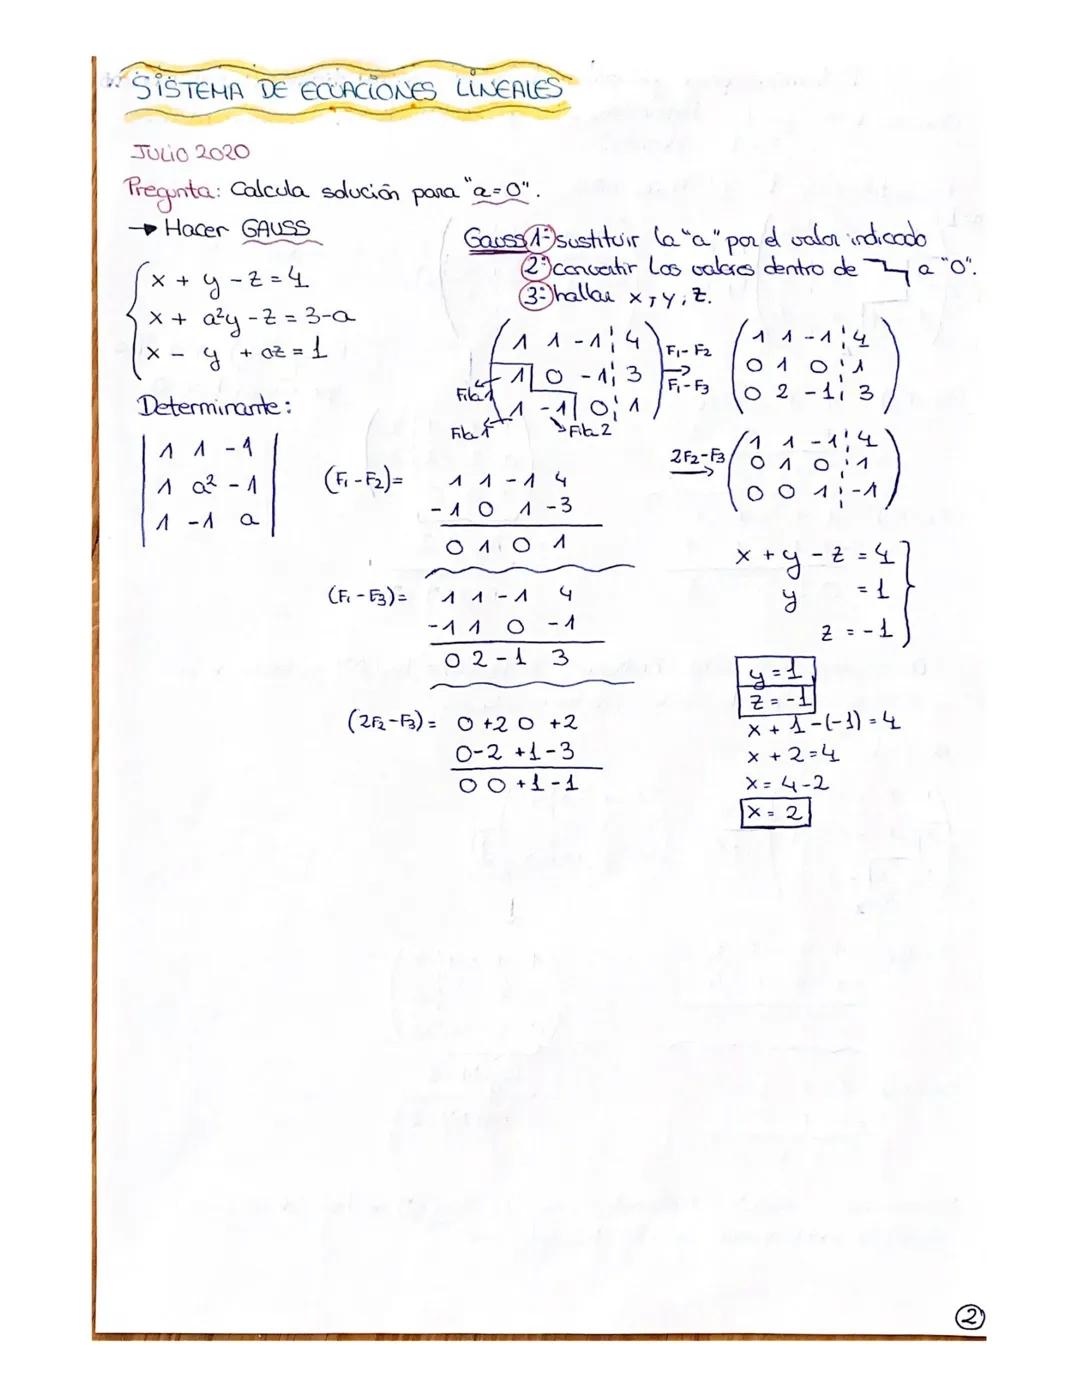 SISTEMA DE ECUACIONES LINEALES
JULIO 2020
Pregunta: Calcula solución para "a=0".
→ Hacer GAUSS
x + y - z = 4
x + a²y - z = 3-a
x - y + az = 1
Determinante:
1 1 -1
1 a² -1
1 -1 a
Gauss 1º sustituir la "a" por el valor indicado
2º convertir los valores dentro de a "0".
3º hallar x, y, z.
1 1 -1 4
1 0 -1 3
1 -1 0 1
Fila 1
Fila 1
Fila 2
F₁-F₂
→
F₁-F₃
1 1 -1 4
0 1 0 1
0 2 -1 3
2F₂-F₃
→
1 1 -1 4
0 1 0 1
0 0 1 -1
(F₁-F₂)= 1 1 -1 4
-1 0 1 -3
0 1 0 1
(F₁-F₃)= 1 1 -1 4
-1 1 0 -1
0 2 -1 3
(2F₂-F₃)= 0 +2 0 +2
0 -2 +1 -3
0 0 +1 -1
x + y - z = 4
y = 1
z = -1
y = 1
z = -1
x + 1 -(-1) = 4
x + 2 = 4
x = 4-2
x = 2
2